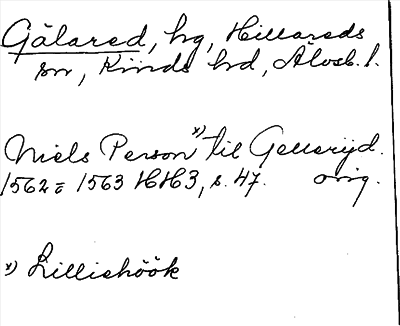 Gälared, hg, Hillareds
sn, Kinds hd, Älvsb. l.
Niels Person x) til Gellerijd.
1562 = 1563 HH3, s. 47. orig.
x) Lilliehöök